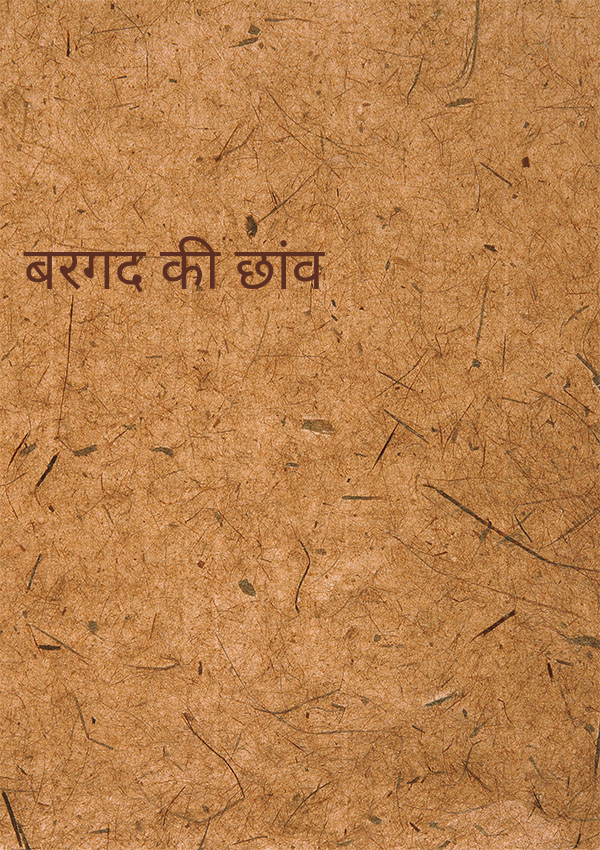 बरगद की छांव